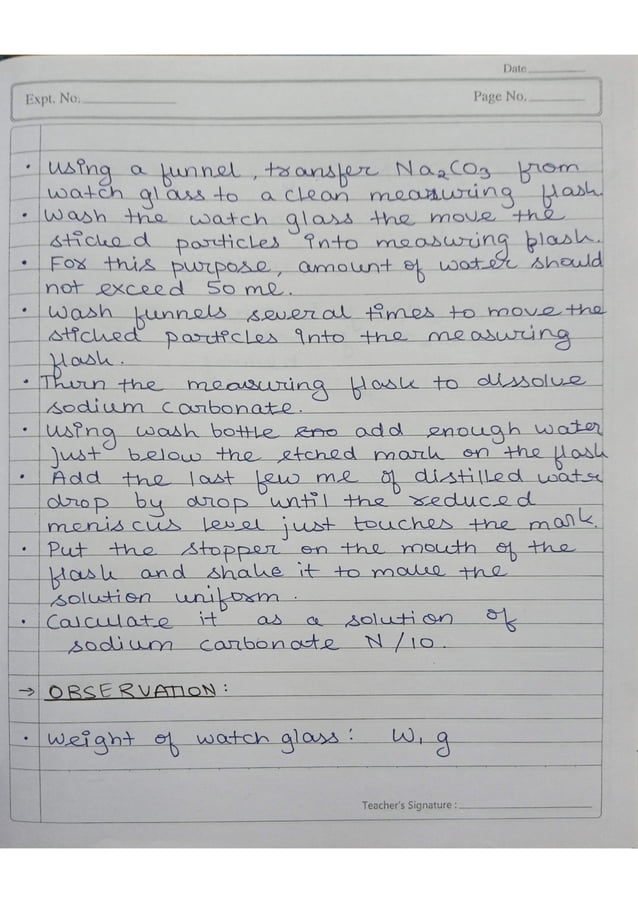 Date
Expt. No.
Page No.
• Using a funnel, transfer Na2CO3 from
watch glass to a clean measuring flask
• Wash the watch glass the move the
sticked particles into measuring flask.
• For this purpose, amount of water should
not exceed 50 ml.
• Wash funnels several times to move the
sticked particles into the measuring
flask.
• Thurn the measuring flask to dissolve
sodium carbonate.
• Using wash bottle add enough water
just below the etched mark on the flask
• Add the last few ml of distilled water
drop by drop until the reduced
meniscus level just touches the mark.
• Put the stopper on the mouth of the
flask and shake it to make the
solution uniform.
• Calculate it as a solution of
sodium carbonate N/10.
→ OBSERVATION:
• Weight of watch glass: W1 g
Teacher's Signature: